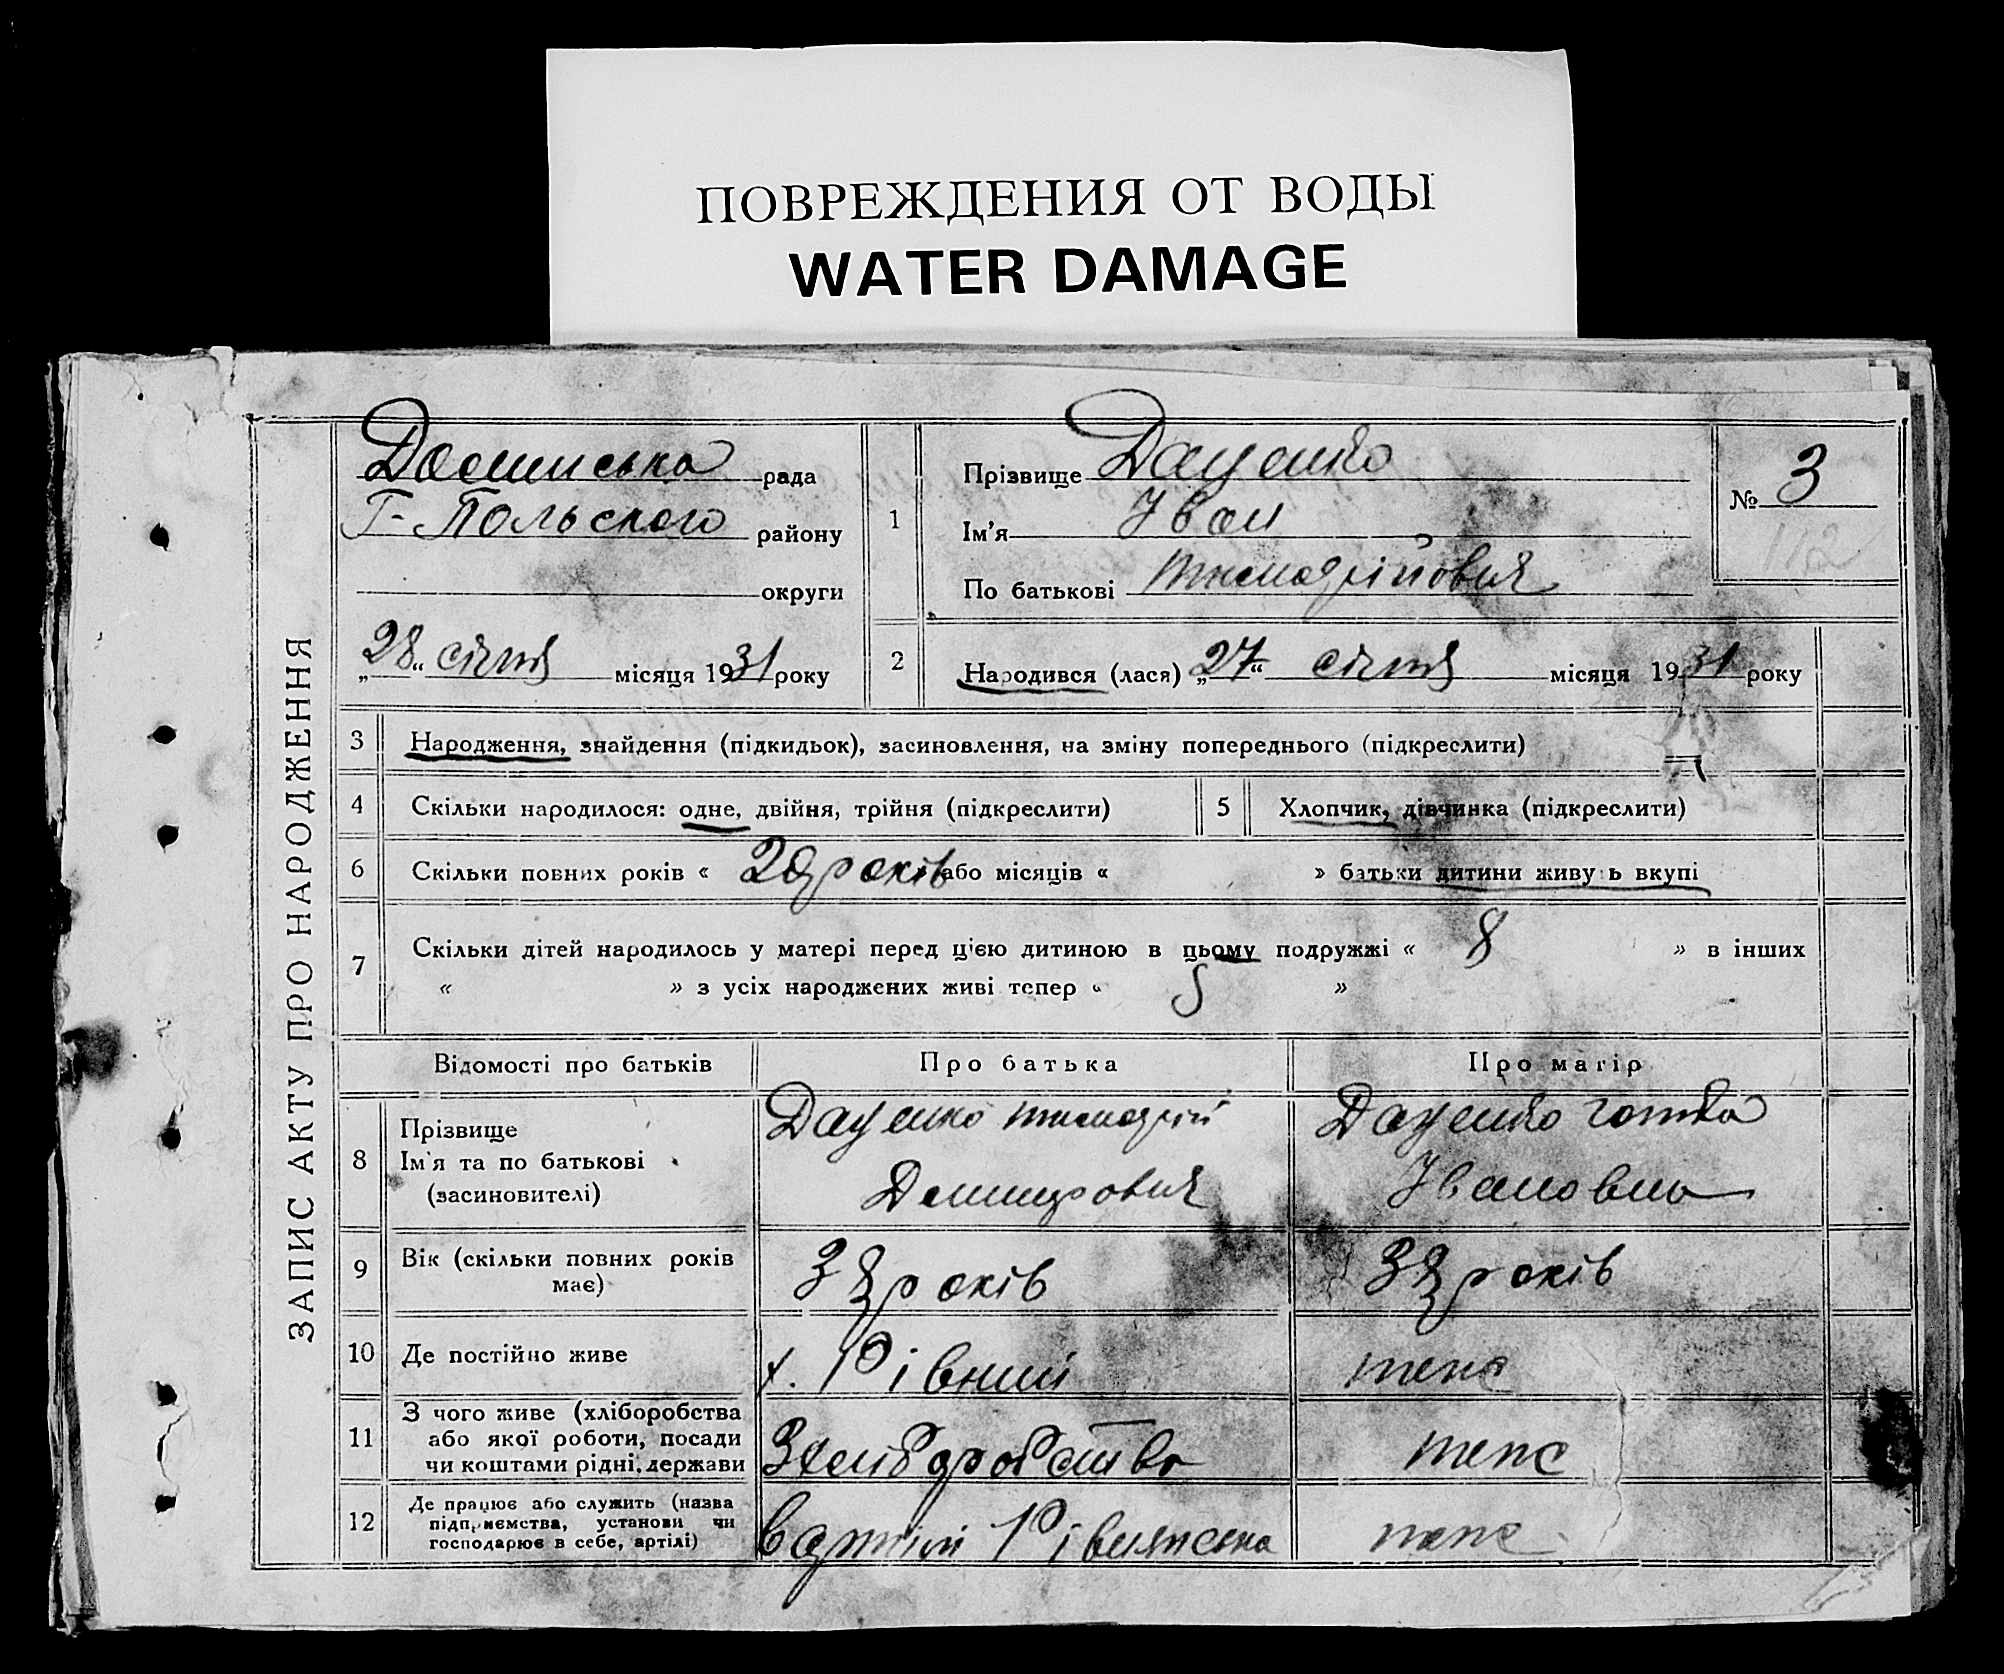 ПОВРЕЖДЕНИЯ ОТ ВОДЫ
WATER DAMAGE
ЗАПИС АКТУ ПРО НАРОДЖЕННЯ
рада
Г-Польского району
округи
„28“ січня місяця 1931 року
1
Прізвище Даценко
Ім'я Іван
По батькові
№ 3
112
2
Народився (лася) „27“ січня місяця 1931 року
3 Народження, знайдення (підкидьок), засиновлення, на зміну попереднього (підкреслити)
4 Скільки народилося: одне, двійня, трійня (підкреслити)
5 Хлопчик, дівчинка (підкреслити)
6 Скільки повних років « років або місяців « » батьки дитини живуть вкупі
7 Скільки дітей народилось у матері перед цією дитиною в цьому подружжі « 8 » в інших
« » з усіх народжених живі тепер « 5 »
Відомості про батьків
Про батька
Про матір
8 Прізвище
Ім'я та по батькові
(засиновителі)
Даценко
Даценко
Івановна
9 Вік (скільки повних років
має)
38 років
38 років
10 Де постійно живе
х. Рівний
теж
11 З чого живе (хліборобства
або якої роботи, посади
чи коштами рідні, держави
теж
12 Де працює або служить (назва
підприємства, установи чи
господарює в себе, артілі)
в артілі
теж